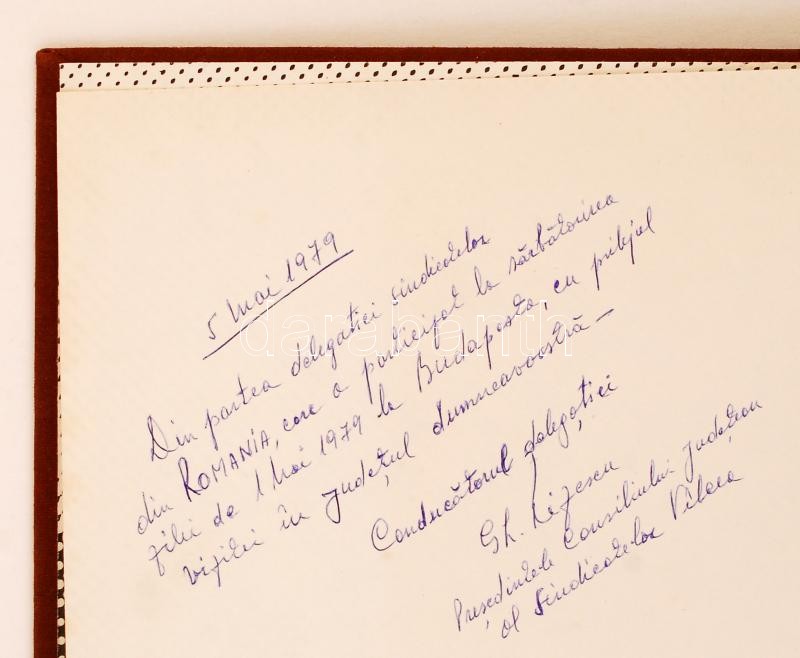 5 Mai 1979
Din partea delegației sindicatelor
din ROMANIA, care a participat la sărbătorirea
zilei de 1 Mai 1979 la Budapesta, cu prilejul
vizitei în județul dumneavoastră —
Conducătorul delegației
Gh.
Președintele Consiliului județean
al Sindicatelor Vîlcea
darabanth